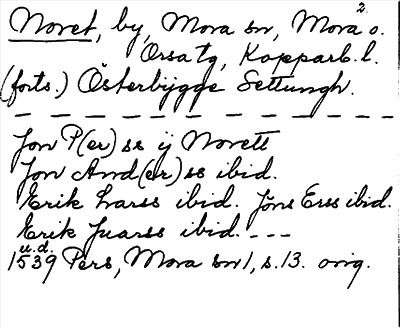 2.
Noret, by, Mora sn, Mora o.
Orsa tg, Kopparb. l.
(forts.) Österbÿgge Settungh.
Jon P(er)se ÿ Norett
Jon And(er)ss ibid.
Erik Larss ibid. Jöns Erss ibid.
Erik Juarss ibid. ---
u.d.
1539 Pers, Mora sn 1, s. 13. orig.